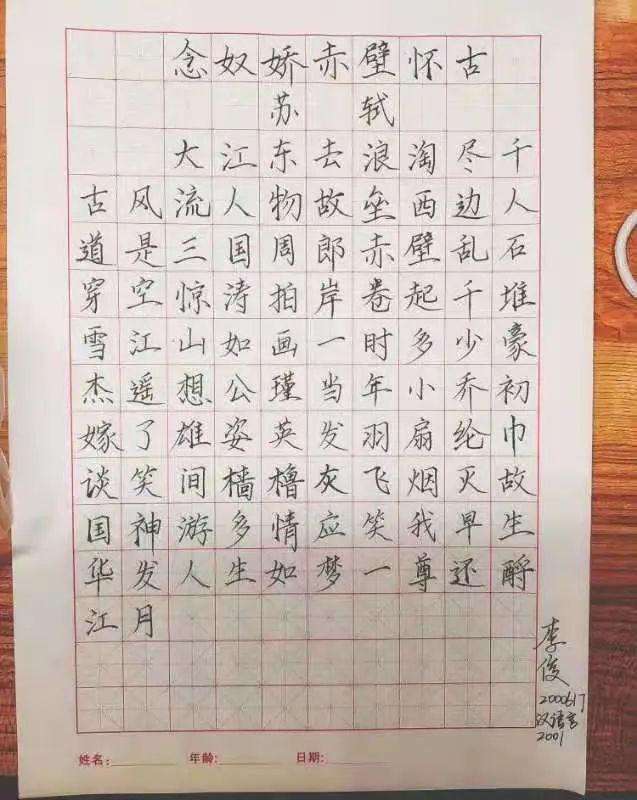 念奴娇赤壁怀古
苏轼
大江东去浪淘尽千
古风流人物故垒西边人
道是三国周郎赤壁乱石
穿空惊涛拍岸卷起千堆
雪江山如画一时多少豪
杰遥想公瑾当年小乔初
嫁了雄姿英发羽扇纶巾
谈笑间樯橹灰飞烟灭故
国神游多情应笑我早生
华发人生如梦一尊还酹
江月
李俊
200617
汉语言
2001
姓名: 年龄: 日期: